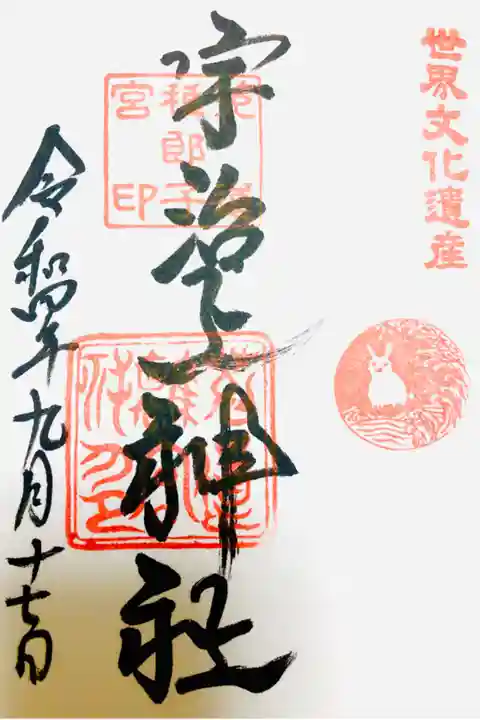 世界文化遺産
宇治上神社
菟道稚郎子宮印
令和四年九月十七日